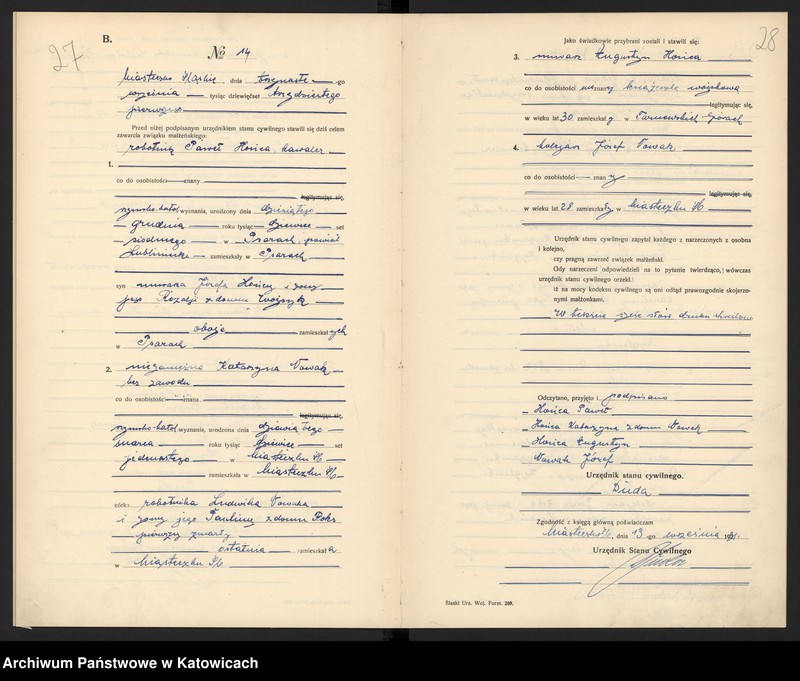 27
B.
№ 14
Miasteczko Śląskie, dnia trzynasto -go
września tysiąc dziewięćset trzydziestego
pierwszego
Przed niżej podpisanym urzędnikiem stanu cywilnego stawili się dziś celem
zawarcia związku małżeńskiego:
robotnik Paweł Hońca, kawaler
1.
co do osobistości znany
legitymując się,
rzymsko katol wyznania, urodzony dnia dziesiątego
grudnia roku tysiąc dziewięć set
siódmego w Psarach, powiat
Lubliniec zamieszkały w Psarach
syn murarza Józefa Hońcy i żony
jego Rozalji z domu
oboje zamieszkałych
w Psarach
2. niezamężna Katarzyna Nowak
bez zawodu
co do osobistości znana
legitymując się,
rzymsko katol wyznania, urodzona dnia dziewiątego
marca roku tysiąc dziewięć set
jedenastego w Miasteczku Śl.
zamieszkała w Miasteczku Śl.
córka robotnika Ludwika Nowaka
i żony jego Pauliny z domu Foks
pierwszy zmarły
ostatnia zamieszkała
w Miasteczku Śl.
28
Jako świadkowie przybrani zostali i stawili się:
3. murarz Augustyn Hońca
co do osobistości uznany książeczką wojskową
legitymując się,
w wieku lat 30 zamieszkały w Tarnowskich Górach
4. Józef Nowak
co do osobistości znany
legitymując się,
w wieku lat 28 zamieszkały w Miasteczku Śl.
Urzędnik stanu cywilnego zapytał każdego z narzeczonych z osobna
i kolejno,
czy pragną zawrzeć związek małżeński.
Gdy narzeczeni odpowiedzieli na to pytanie twierdząco, wówczas
urzędnik stanu cywilnego orzekł:
iż na mocy kodeksu cywilnego są oni odtąd prawozgodnie skojarzonymi małżonkami.
W tekście
Odczytano, przyjęto i podpisano
Hońca Paweł
Hońca Katarzyna z domu Nowak
Hońca Augustyn
Nowak Józef
Urzędnik stanu cywilnego.
Duda
Zgodność z księgą główną poświadczam
Miasteczko Śl., dnia 13 -go września 1931.
Urzędnik Stanu Cywilnego
Śląski Urz. Woj. Form. 209.
Archiwum Państwowe w Katowicach